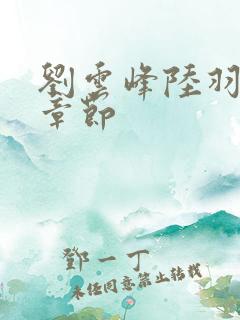 劉雲峰陸羽
章節
鄧一丁
未經同意禁止轉載